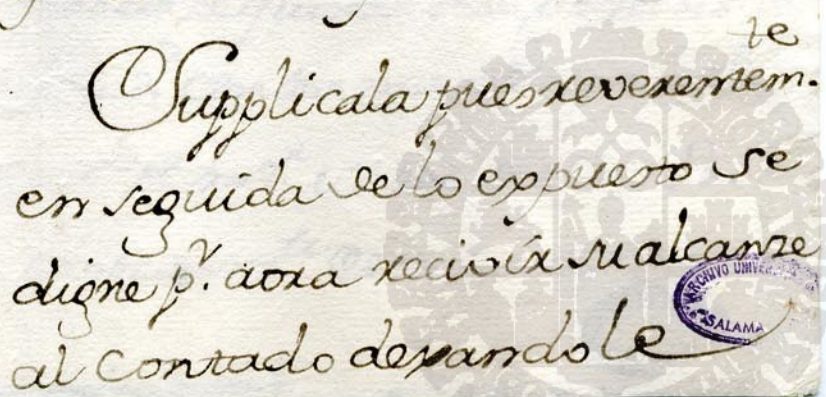 Supplicala pues reverentem.te
en seguida de lo expuesto se
digne p.r aora recivir su alcanze
al Contado dexandole
ARCHIVO UNIVER
SALAMA